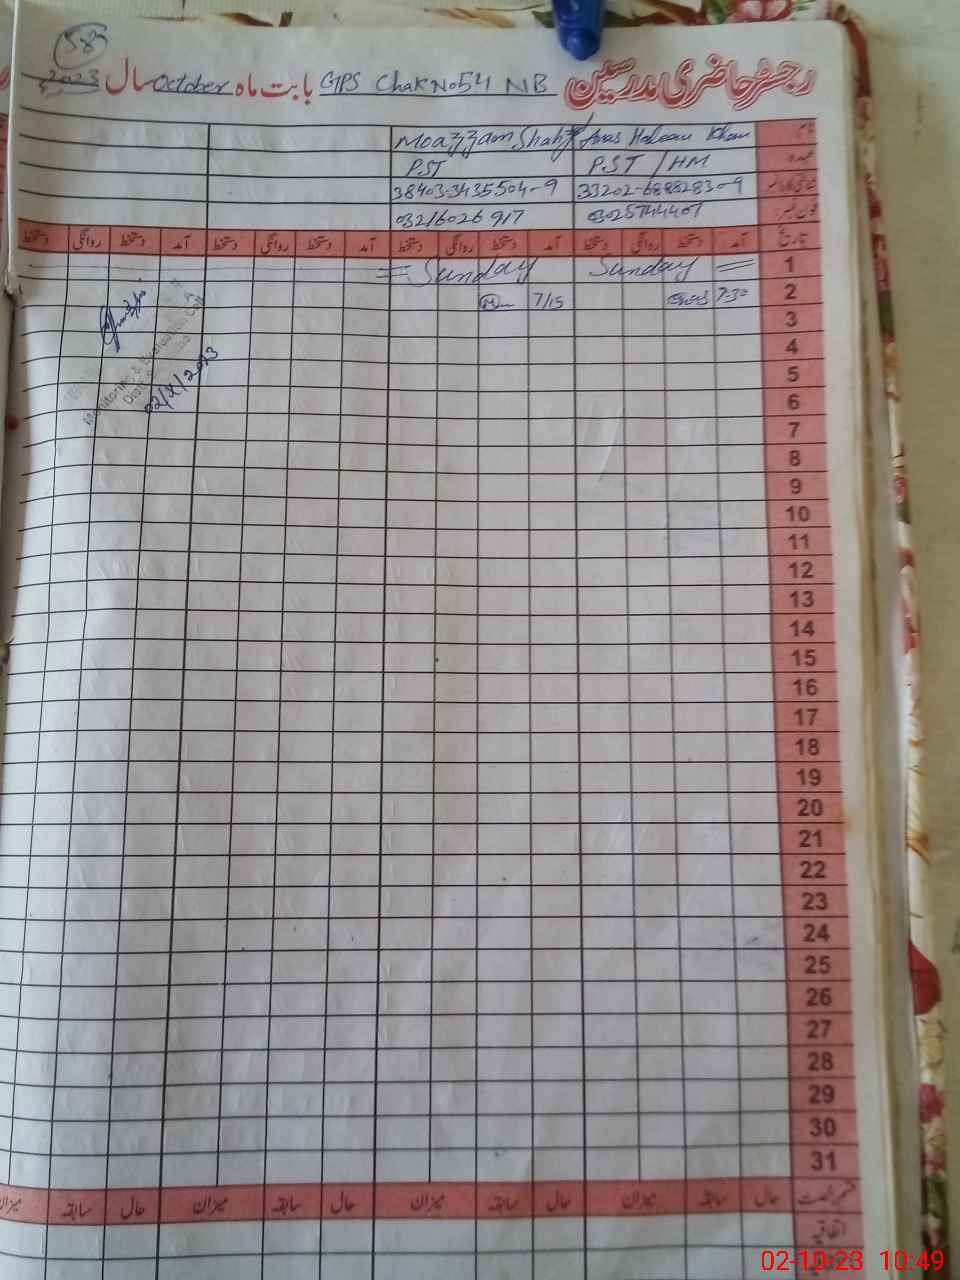 583
رجسٹر حاضری مدرسین GPS Chak No 54 NB بابت ماہ October سال 2023
نام Anas Haleem Khan Moazzam Shah
عہدہ PST / HM PST
شناختی کارڈ نمبر 33202-6888283-9 38403-3435504-9
فون نمبر: 03025744407 03216026917
تاریخ آمد دستخط روانگی دستخط آمد دستخط روانگی دستخط آمد دستخط روانگی دستخط آمد دستخط روانگی دستخط
1 = Sunday Sunday =
2 7:30 7/15
3
4
5
6
7
8
9
10
11
12
13
14
15
16
17
18
19
20
21
22
23
24
25
26
27
28
29
30
31
Monitoring & Evaluation Cell
02/X/2023
قسم رخصت حال سابقہ میزان حال سابقہ میزان حال سابقہ میزان حال سابقہ میزان
اتفاقیہ
02-10-23 10:49